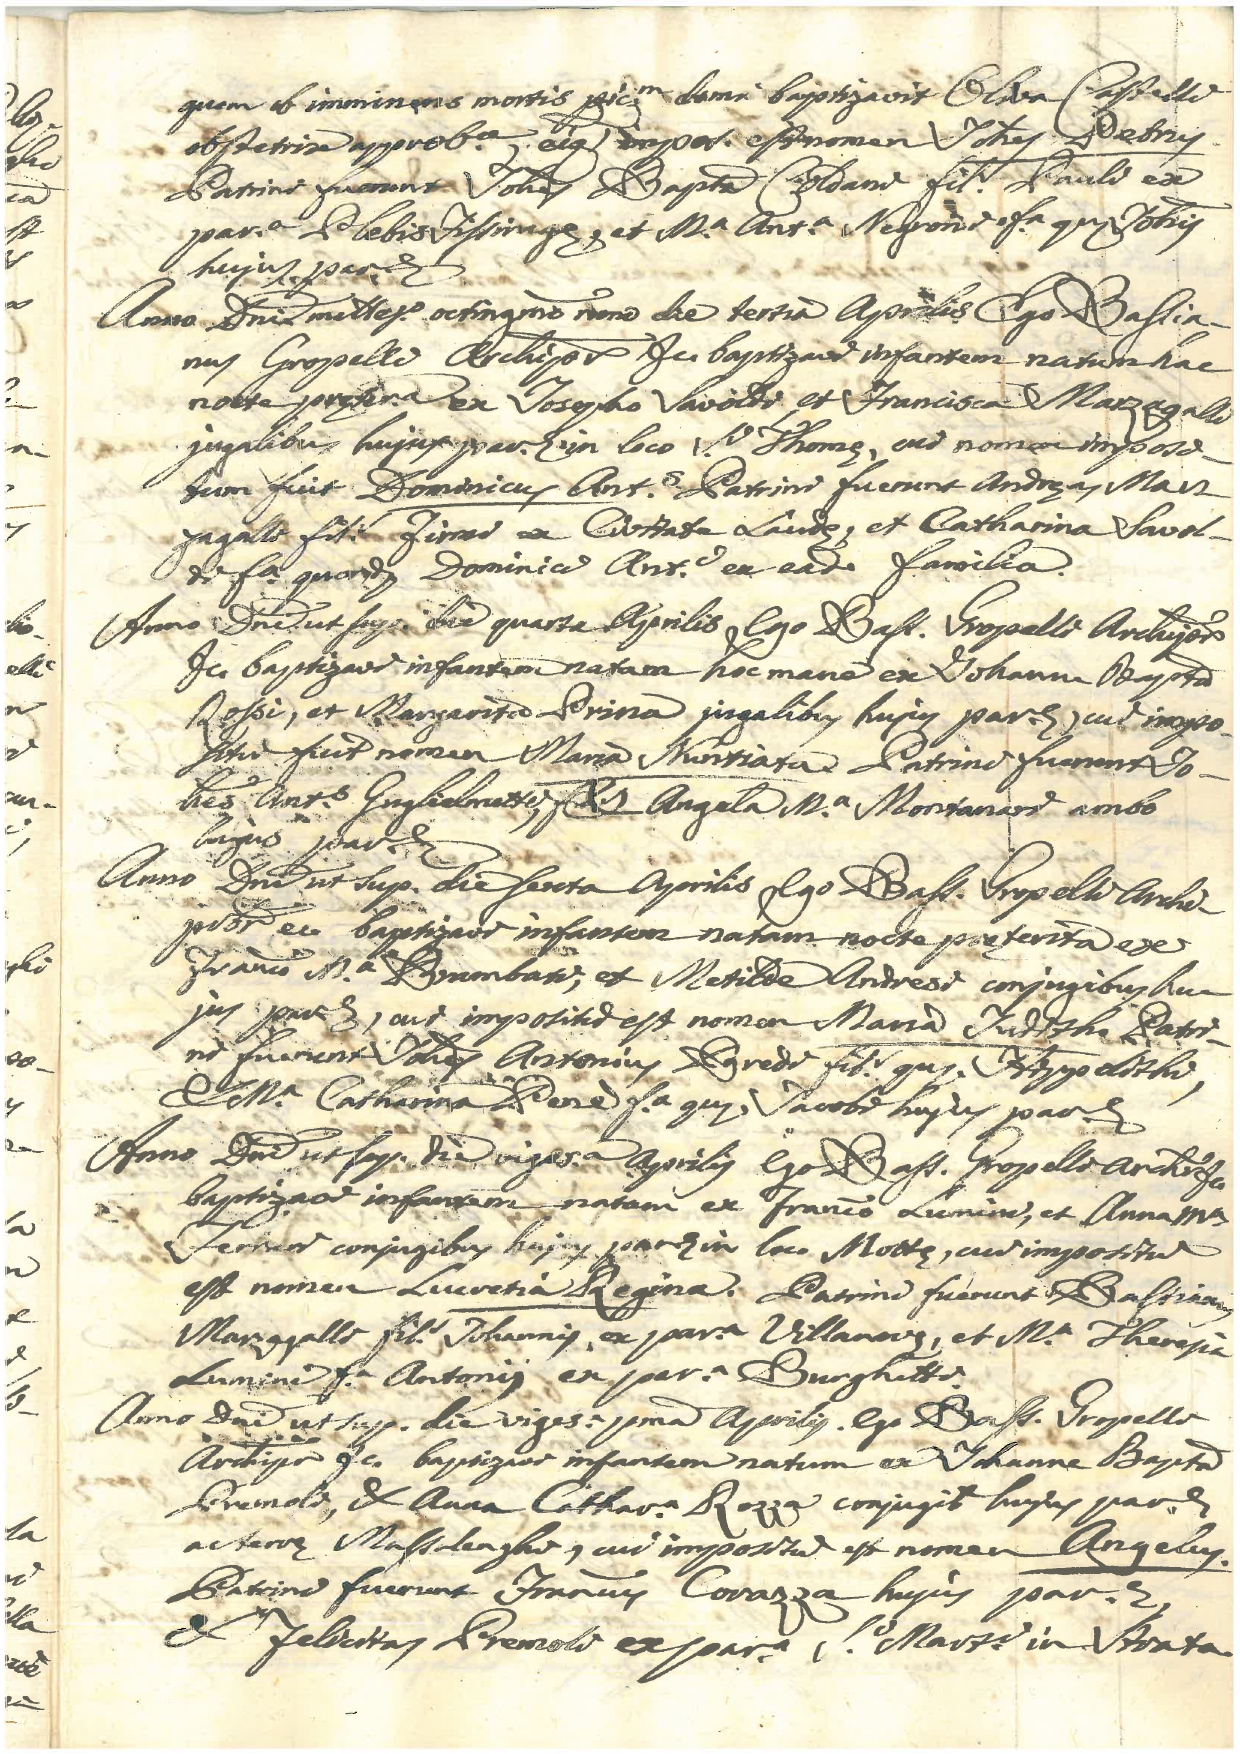 quem ob imminens mortis pic.m domi baptizavit Oliva Castelli
obstetrix approb.a, eiq3 impos. est nomen Iohes Petrus
Patrini fuerunt Iohes Bapta Goldani fil.s Pauli ex
par.a Plebis Fissiragę, et M.a Ant.a Negroni f.a qm Iohis
hujus par.ę
Anno Dni milles.o octingmo nono die tertia Aprilis Ego Bassia-
nus Gropelli Archipr Fc. baptizavi infantem natum hac
nocte pręter.a ex Josepho Savoldi et Francisca Marzagalli
jugalibus hujus par.ę in loco S.ti Thomę, cui nomen imposi-
tum fuit Dominicus Ant.s Patrini fuerunt Andręas Mar-
zagalli fil.s Firmi ex Civitate Laudę, et Catharina Savol-
di f.a quondam Dominici Ant.i ex eade familia.
Anno Dni ut sup. die quarta Aprilis Ego Bass. Gropelli Archipr
Fc. baptizavi infantem natam hoc mane ex Iohanne Bapta
Rossi, et Margarita Prina jugalibus hujus par.ę, cui impo-
situ fuit nomen Maria Nuntiata. Patrini fuerunt Io-
hes Ant.s Guglielmetti, Angela M.a Montanari ambo
hujus par.ę
Anno Dni ut sup. die sexta Aprilis Ego Bass. Gropelli Archi-
pbr ec. baptizavi infantem natam nocte pręterita ex
Franco M.a Brumbati, et Metilde Andresi conjugibus hu-
jus par.ę, cui impositu est nomen Maria Judittha Patri-
ni fuerunt Iohes Antonius Bredi fil.s qm. Hyppolithi,
& M.a Catharina Pere f.a qm. Jacobi hujus par.ę
Anno Dni ut sup. die viges.a Aprilis Ego Bass. Gropelli Archi. Fc
baptizavi infantem natam ex Franco Lumini, et Anna M.a
Ferrari conjugibus hujus par.ę in loco Mottę, cui impositu
est nomen Lucretia Regina. Patrini fuerunt Bassianus
Marzagalli fil.s Iohannis ex par.a Villanovę, et M.a Theresia
Lumini f.a Antonij ex par.a Burghetti.
Anno Dni ut sup. die viges.a pma Aprilis. Ego Bass. Gropelli
Archipr Fc. baptizavi infantem natum ex Iohanne Bapta
Premoli, & Anna Cathar.a Rozza conjugib hujus par.ę
ac terrę Massalenghi, cui impositu est nomen Angelus.
Patrini fuerunt Francus Corazza hujus par.ę,
& Felicitas Premoli ex par.a S.ti Mart.i in Strata.